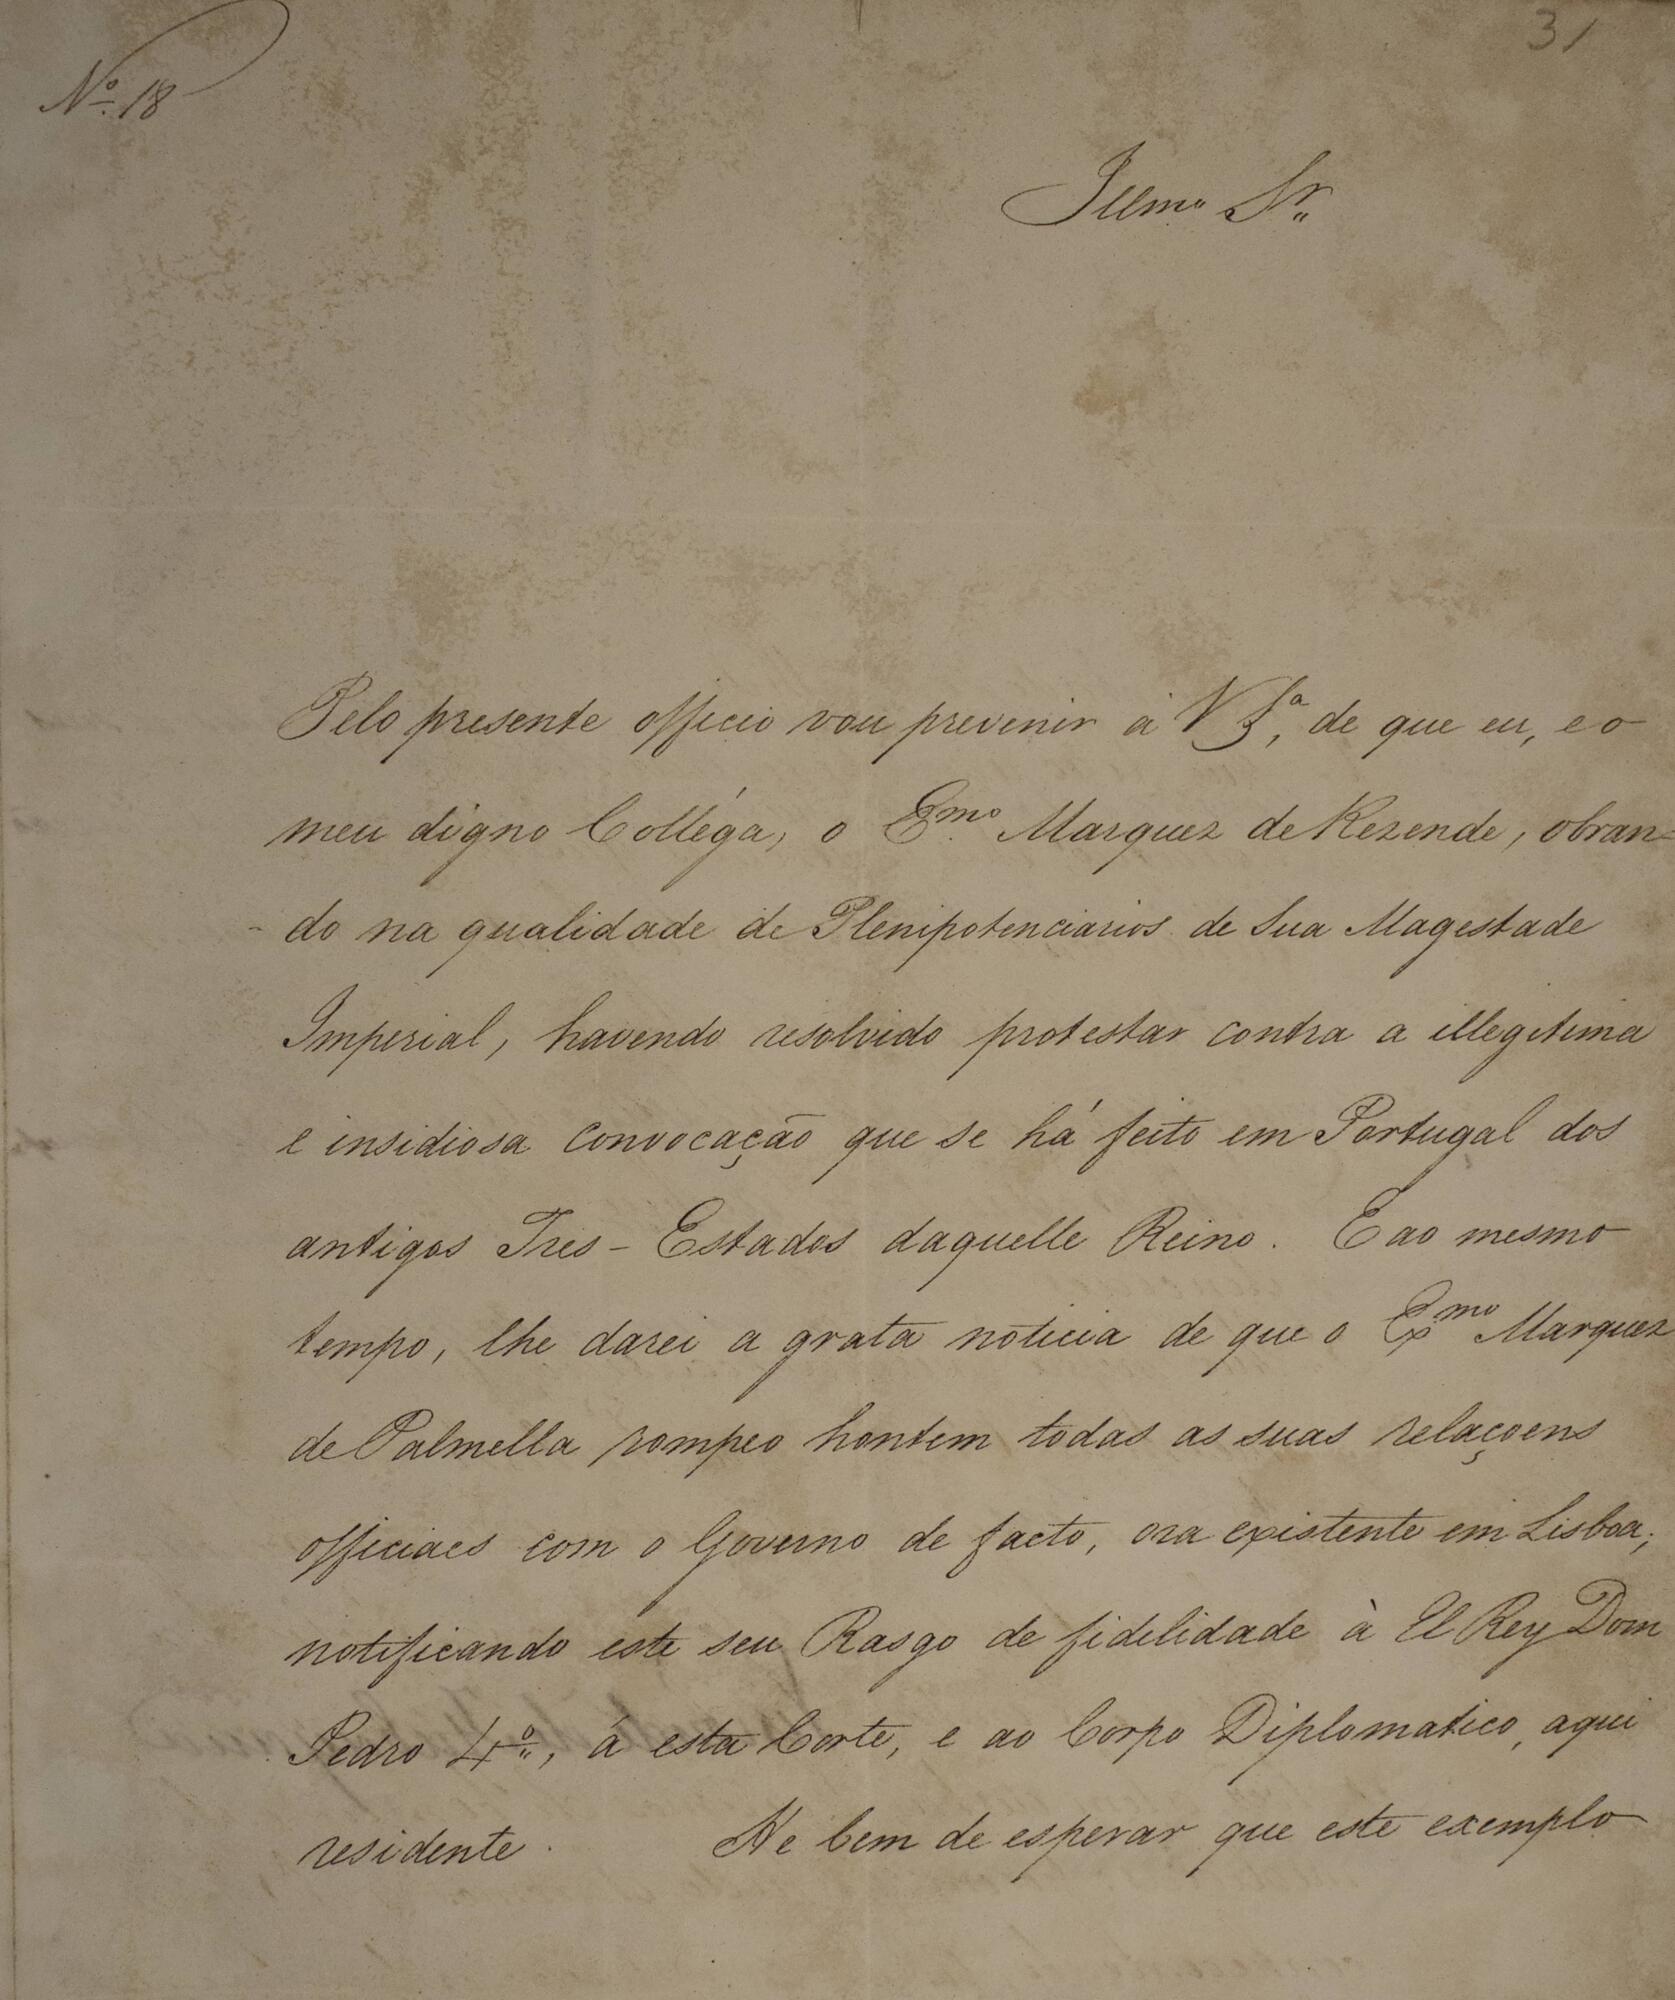 31
Nº 18
Illmo Sr.
Pelo presente officio vou prevenir á V Sª, de que eu, e o
meu digno Colléga, o Emo Marquez de Rezende, obran=
do na qualidade de Plenipotenciarios de Sua Magestade
Imperial, havendo resolvido protestar contra a illegitima
e insidiosa convocação que se há feito em Portugal dos
antigos Tres-Estados daquelle Reino. E ao mesmo
tempo, lhe darei a grata noticia de que o Exmo Marquez
de Palmella rompeo hontem todas as suas relaçoens
officiaes com o Governo de facto, ora existente em Lisboa;
notificando este seu Rasgo de fidelidade à El Rey Dom
Pedro 4º, á esta Corte, e ao Corpo Diplomatico, aqui
residente. He bem de esperar que este exemplo